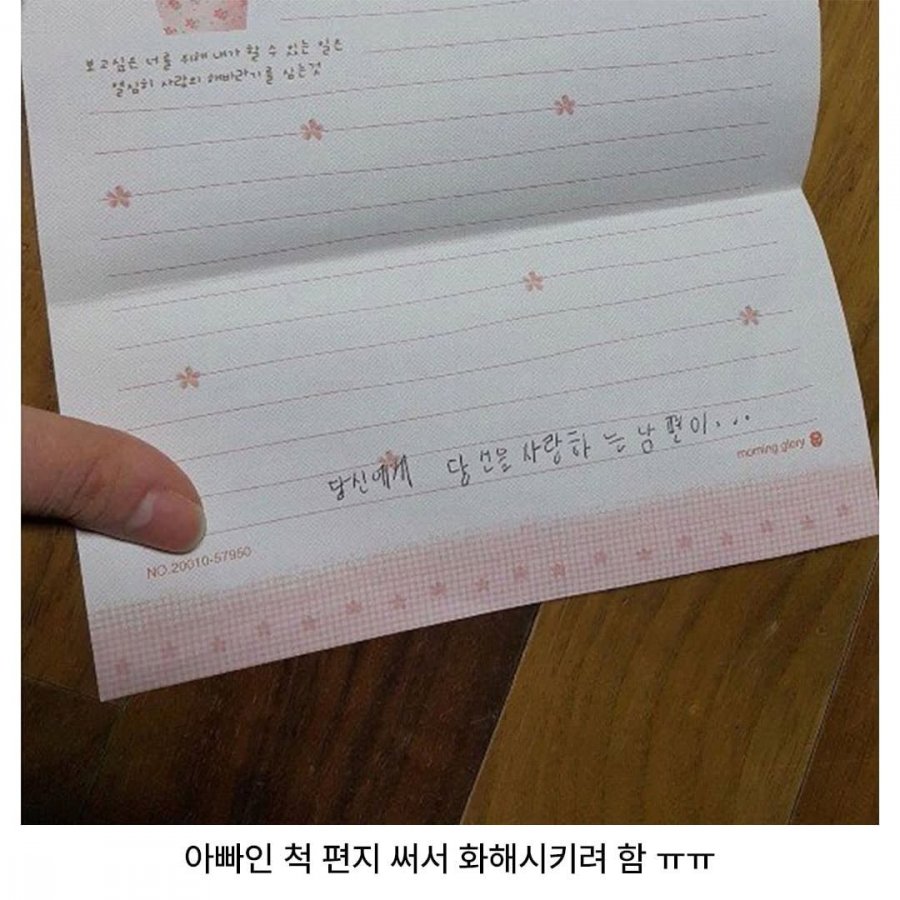 보고싶은 너를 위해 내가 할 수 있는 일은
열심히 사랑의 해바라기를 심는것
당신에게 당신을 사랑하는 남편이...
morning glory
NO.20010-57950
아빠인 척 편지 써서 화해시키려 함 ㅠㅠ